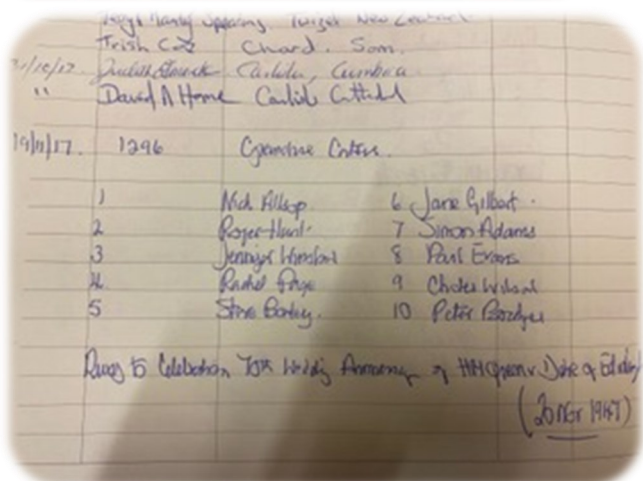 Twizel New Zealand
Trish Cox Chard. Som.
Judith Carlisle, Cumbria
" David A Horne Carlisle Cathedral
19/11/17. 1296 Grandsire Caters.
1 Nick Allsop. 6 Jane Gilbert.
2 Roger Hunt 7 Simon Adams
3 Jennifer 8 Paul Evans
4 Rachel Page 9 Wilson
5 Steve 10 Peter
Rung to Celebration 70th Wedding Anniversary of HM Queen & Duke of Edinburgh
(20 Nov 1947)